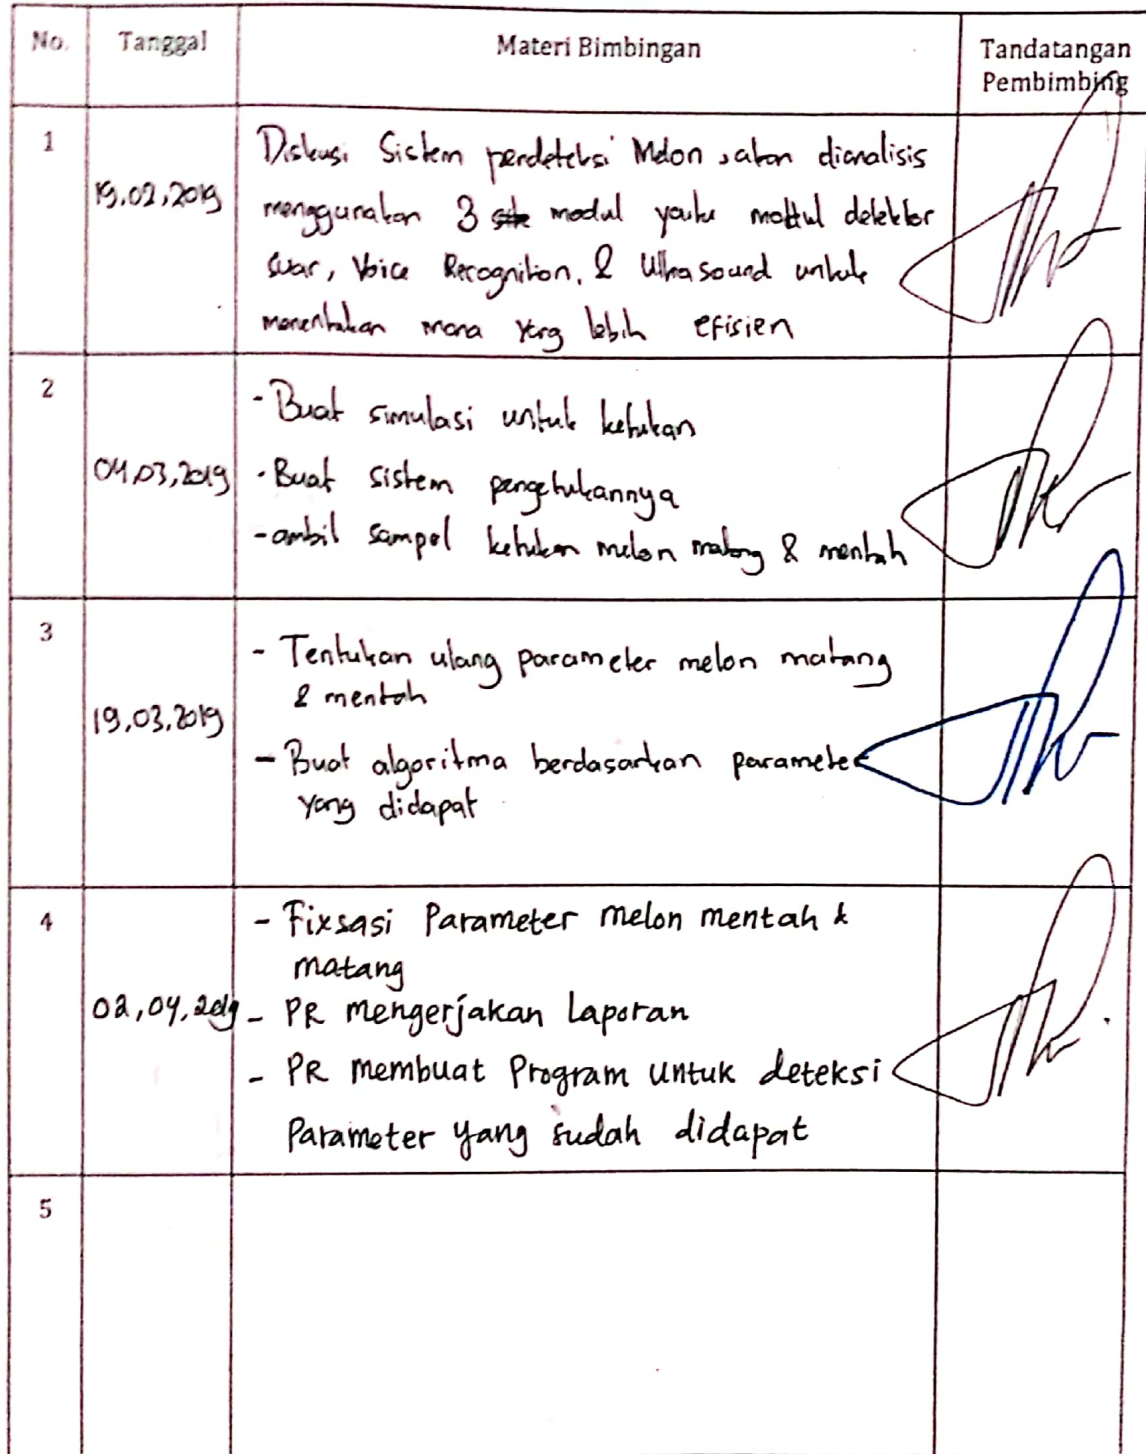 No. Tanggal Materi Bimbingan Tandatangan
Pembimbing
1
19.02.2019
Diskusi Sistem pendeteksi Melon, akan dianalisis
menggunakan 3 modul yaitu modul detektor
suar, Voice Recognition, & Ultrasound untuk
menentukan mana yang lebih efisien
2
04.03.2019
- Buat simulasi untuk ketukan
- Buat sistem pengetukannya
- ambil sampel ketukan melon matang & mentah
3
19.03.2019
- Tentukan ulang parameter melon matang
& mentah
- Buat algoritma berdasarkan parameter
yang didapat
4
02.04.2019
- Fixsasi Parameter melon mentah &
matang
- PR mengerjakan Laporan
- PR membuat Program untuk deteksi
Parameter yang sudah didapat
5